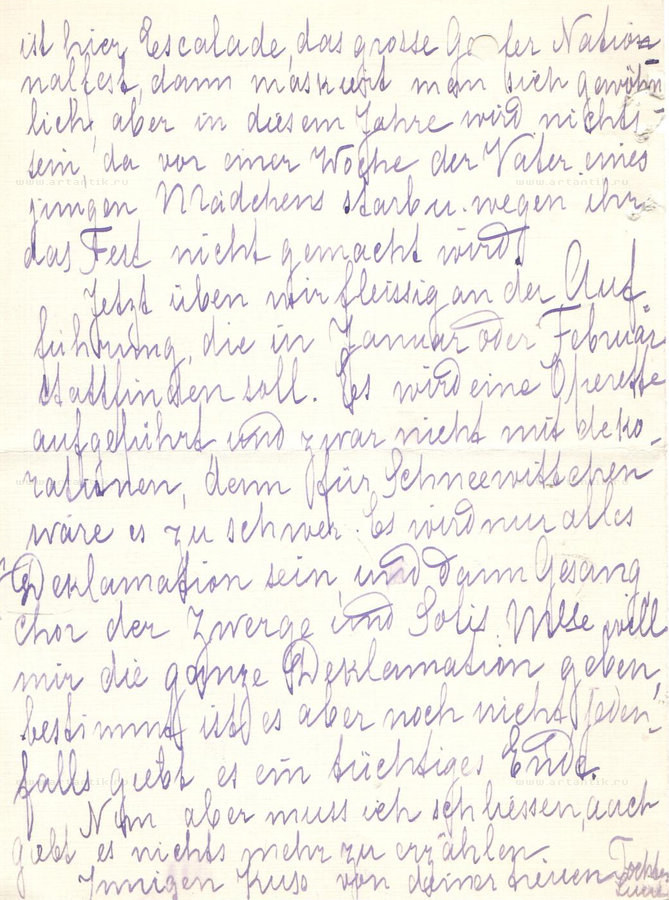 ist hier Escalade, das grosse Genfer Natio=
nalfest, dann maskiert man sich gewöhn
lich, aber in diesem Jahre wird nichts
sein, da vor einer Woche der Vater eines
jungen Mädchens starb u. wegen ihr
das Fest nicht gemacht wird!
Jetzt üben wir fleissig an der Auf
führung, die in Januar oder Februar
stattfinden soll. Es wird eine Operette
aufgeführt und zwar nicht mit deko-
rationen, denn für Schneewittchen
wäre es zu schwer. Es wird nur alles
Deklamation sein, und dann Gesang
Chor der Zwerge und Solis. Mlle will
mir die ganze Deklamation geben,
bestimmt ist es aber noch nicht. Jeden-
falls giebt es ein tüchtiges Ende.
Nun aber muss ich schliessen, auch
giebt es nichts mehr zu erzählen.
Innigen Kuss von deiner treuen Tochter
www.artantik.ru